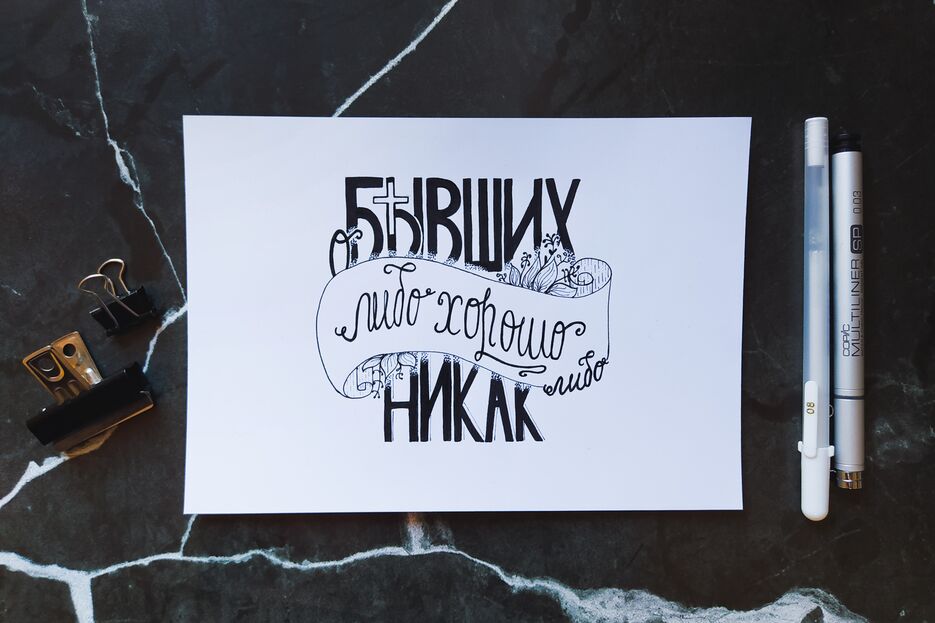 о БЫВШИХ
либо хорошо
либо
НИКАК
COPIC MULTILINER SP 0.03
08